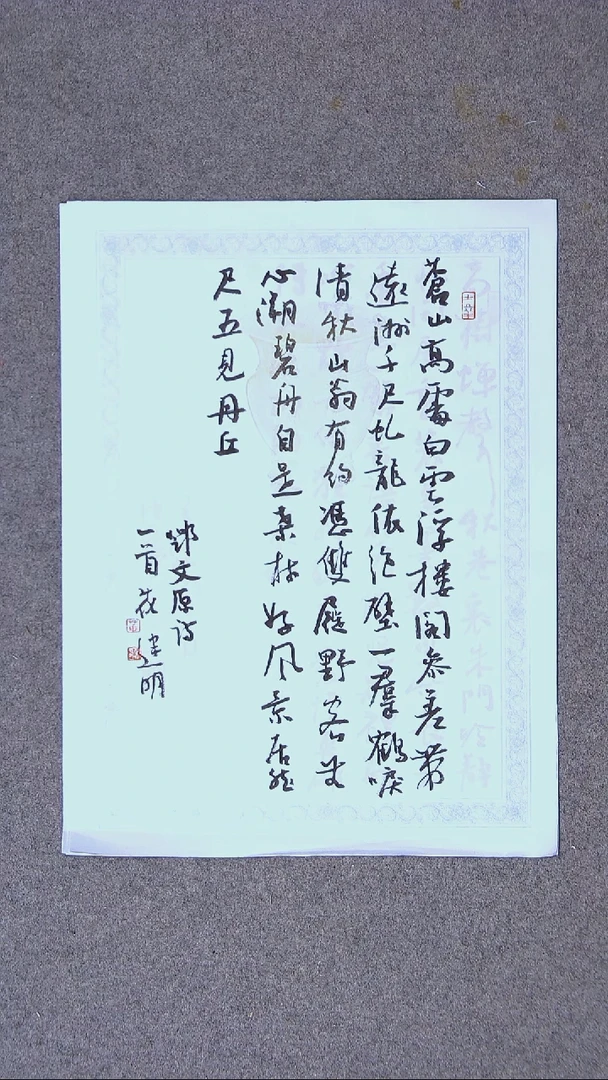 蒼山高處白雲浮樓閣參差帶
遠洲千尺虬龍依絶壁一羣鶴唳
清秋山翁有約憑雙屐野客無
心溯碧舟自是桑林好風景居然
尺五見丹丘
鄧文原詩
一首 建明